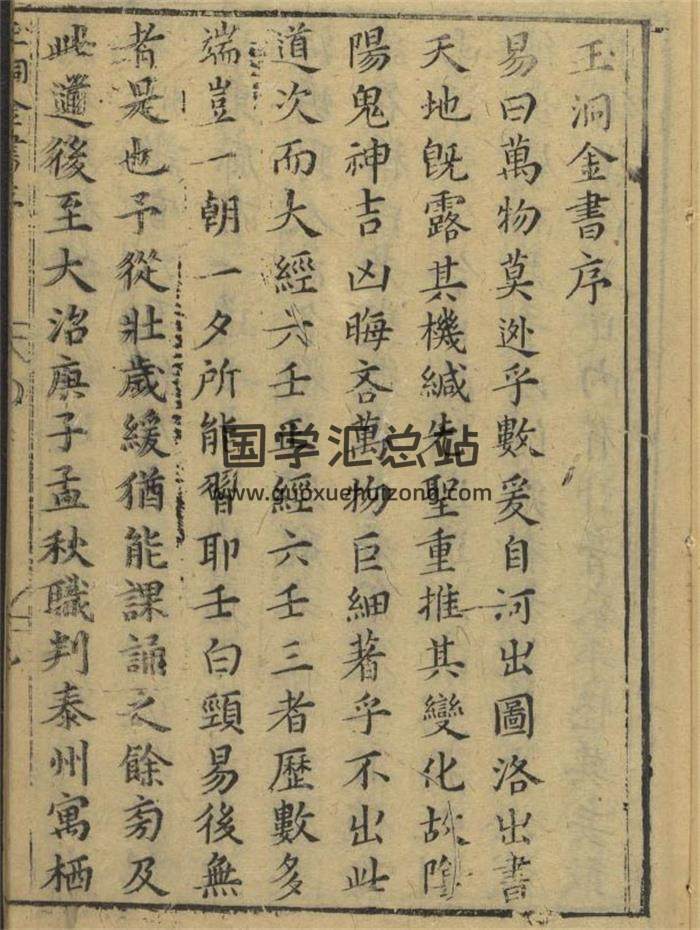 玉洞金書序
易曰萬物莫逃乎數爰自河出圖洛出書
天地旣露其機緘先聖重推其變化故陰
陽鬼神吉凶晦吝萬物巨細著乎不出此
道次而大經六壬正經六壬三者歷數多
端豈一朝一夕所能習耶壬白頸易後無
者是也予從壯歲緩猶能課誦之餘旁及
此道後至大治庚子孟秋職判泰州寓栖
玉洞金書序
国学汇总站
www.guoxuehuizong.com